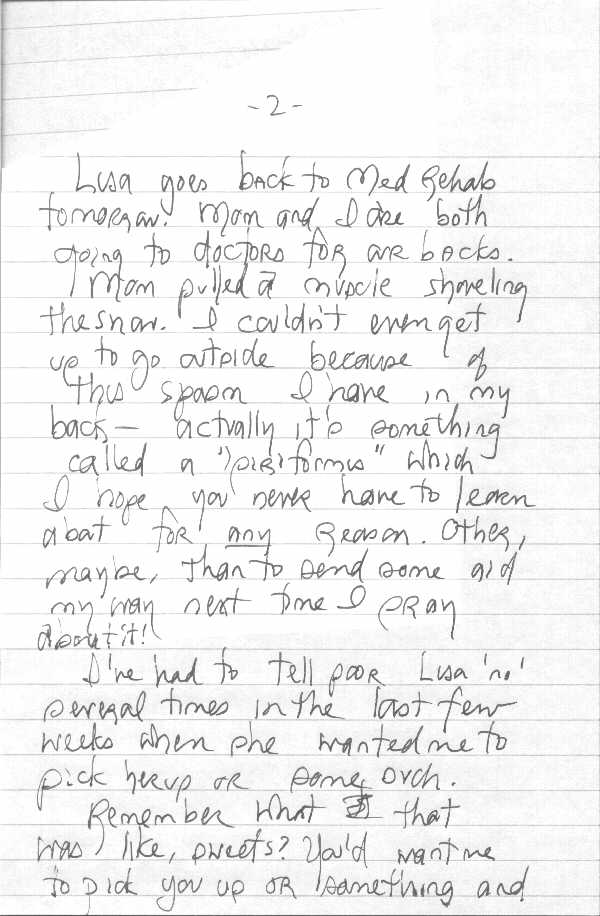 - 2 -
Lisa goes back to Med Rehab
tomorrow. Mom and I are both
going to doctors for our backs.
Mom pulled a muscle shoveling
the snow. I couldn't even get
up to go outside because of
this spasm I have in my
back — actually it's something
called a "piriformis" which
I hope you never have to learn
about for any reason. Other,
maybe, than to send some aid
my way next time I pray
about it!
I've had to tell poor Lisa 'no'
several times in the last few
weeks when she wanted me to
pick her up or some such.
Remember what that
was like, sweets? You'd want me
to pick you up or something and